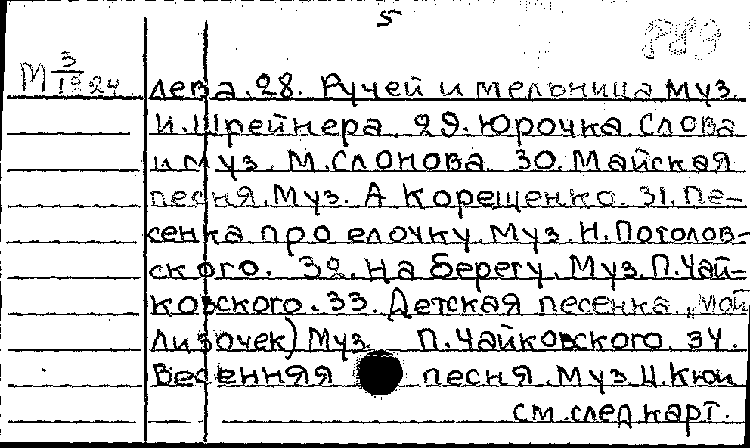 5
889
М 3/1924 лева. 28. Ручей и мельница муз.
И. Шрейнера. 29. Юрочка Слова
и муз. М. Слонова. 30. Майская
песня. Муз. А Корещенко. 31. Пе-
сенка про елочку. Муз. Н. Потолов-
ского. 32. На берегу. Муз. П. Чай-
ковского. 33. Детская песенка „мой
Лизочек) Муз. П. Чайковского. 34.
Весенняя песня. Муз. Ц. Кюи
см. след карт.